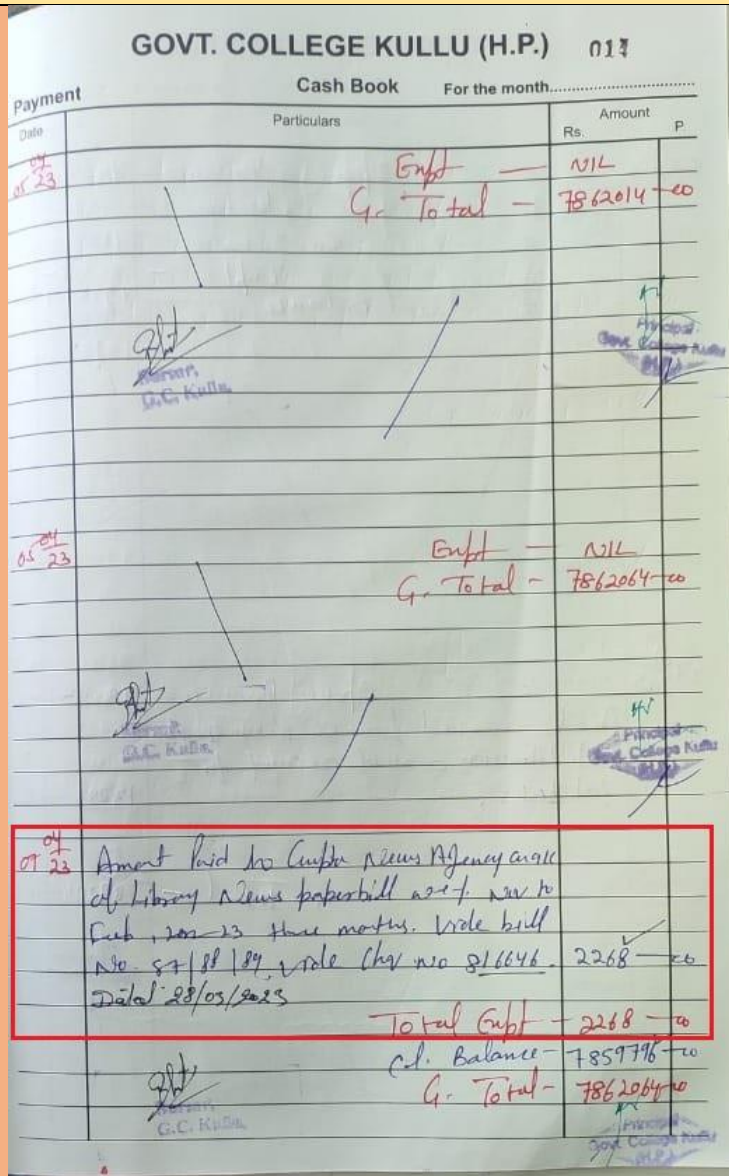 GOVT. COLLEGE KULLU (H.P.) 017
Payment Cash Book For the month
Date Particulars Amount
Rs. P.
04
05 23 Expt — NIL
G. Total - 7862014-00
Principal
Govt. College Kullu
(H.P.)
Bursar,
G.C. Kullu,
05 04
23 Expt — NIL
G. Total - 7862064-00
Principal
Govt. College Kullu
(H.P.)
G.C. Kullu,
04
23 Amont Paid to Gupta News Agency
of Library News paperbill w.e.f. Nov to
Feb, 23 three months. Vide bill
No. 87/88/89, vide Chq no 816646. 2268 — 00
Dated 28/03/2023
Total Expt - 2268 - 00
Cl. Balance - 7859796-00
G. Total - 7862064-00
Bursar,
G.C. Kullu,
Principal
Govt. College Kullu
(H.P.)